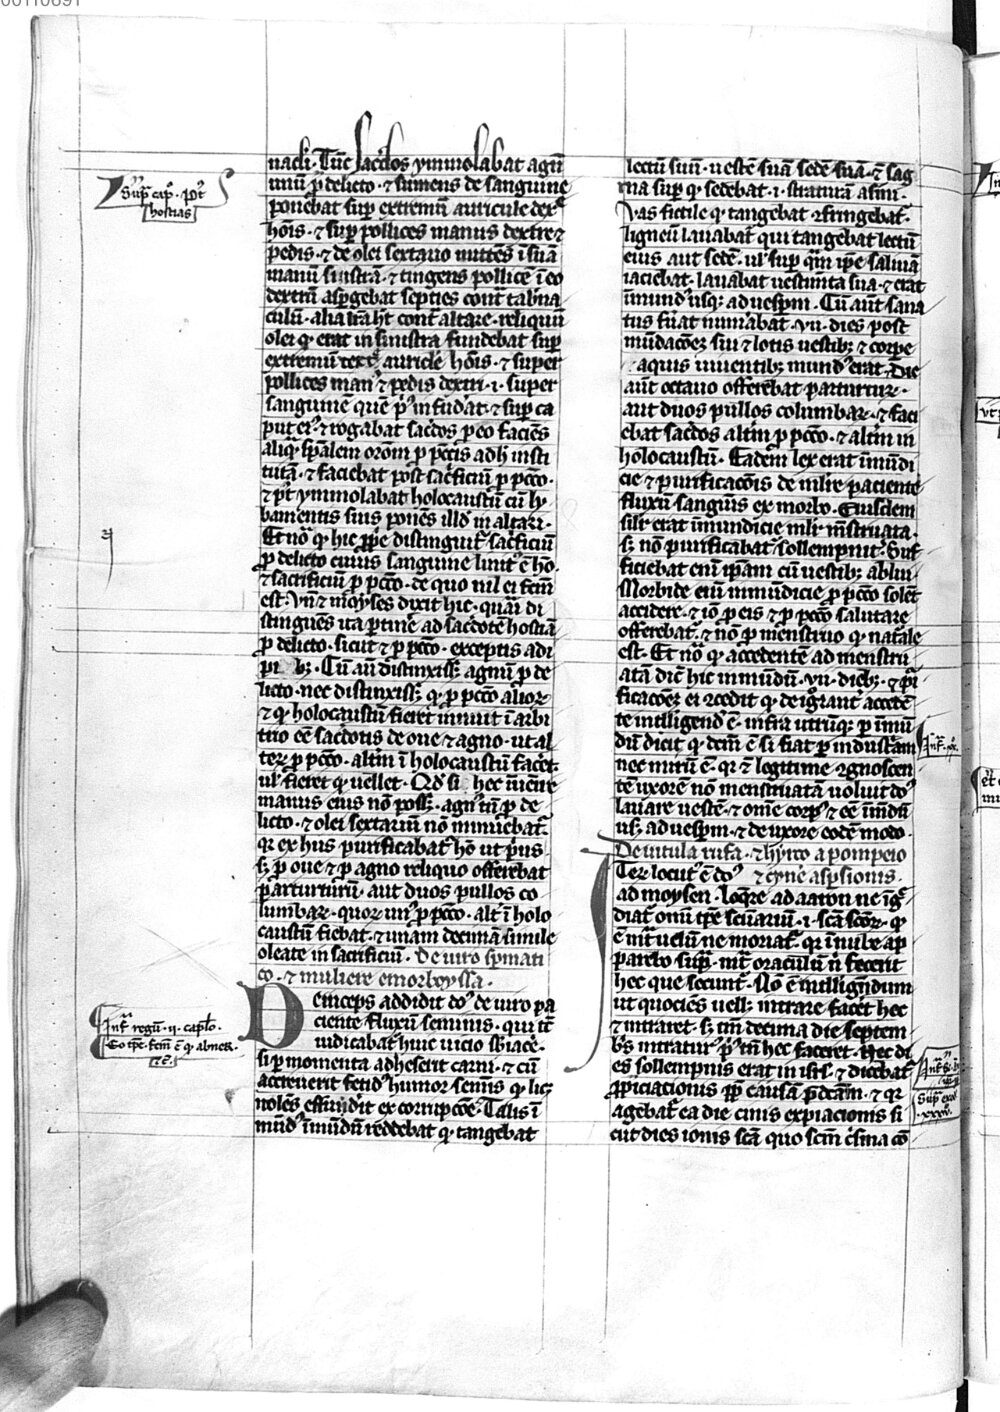 nacli· Tūc sacdos ymmolabat agnū
unū p̄ delicto· ⁊ sumens de sanguine
ponebat sup̄ extremū auricule dext̄
hōis· ⁊ sup̄ pollices manus dextre ⁊
pedis· ⁊ de olei sextario mittēs ī suā
manū sinistrā· ⁊ tingens pollicē ī eo
dextrū asp̄gebat septies cont̄ tab̄na
culū· alia lr̄a ht̄ cont̄ altare· reliquū
olei qd̄ erat in sinistra fundebat sup̄
extremū dext̄ auricle hōis· ⁊ super
pollices man᷒ ⁊ pedis dextri· i· super
sanguinē quē p᷒ infudat· ⁊ sup̄ ca
put ei᷒ ⁊ rogabat sacdos p̄ eo faciēs
aliq̄ sp̄alem orōm p̄ pccīs adh̄ insti
tutā· ⁊ faciebat post sac̄ficiū p̄ pccō·
⁊ p᷒t ymmolabat holocaustū cū ly
bamentis suis ponēs illd̄ in altari·
Et nō qd̄ hic p̄p̄e distinguit᷑ sac̄ficiū
p̄ delicto cuius sanguine linit᷑ ē hō·
⁊ sacrificiū p̄ pccō· de quo nil ei fcm̄
est· Vn̄ ⁊ moyses dixit hic· quasi di
stingues ita p̄tinē ad sacdotē hostiā
p̄ delicto· sicut ⁊ p̄ pccō· exceptis adi
Cū aū distinxiss; agnū p̄ de
licto· nec distinxiss; qd̄ p̄ pccō alioꝝ
⁊ qd̄ holocaustū fieret innuit ī arbi
trio eē sacdotis de oue ⁊ agno· ut al
terū p̄ pccō· altm̄ ī holocaustū facet·
ul᷑ fieret qd̄ vellet· Qd̄ si hec īuenire
manus eius nō poss; agn᷒ tn̄ p̄ de
licto· ⁊ olei sextariū nō minuebat᷑·
qr̄ ex his purificabat᷑ hō ut p᷒us
s; p̄ oue ⁊ p̄ agno reliquo offerebat
p̄ar turturū· aut duos pullos co
lumbaꝝ· quoꝝ un᷒ p̄ pccō· alt᷑ ī holo
caustū fiebat· ⁊ unam decimā simile
oleate in sacrificiū· De uiro sp̄mati
co· ⁊ muliere emorroyssa·
Deinceps addidit do᷒ de uiro pa
ciente fluxū seminis· qui tē
iudicabat᷑ huic uicio sb̄iacē·
si p̄ momenta adheserit carni· ⁊ cū
accreuerit fetid᷒ humor seīnis qd̄ lic;
nolēs effundit ex corrupcōe· Talis ī
mūd᷒ īmūdū reddebat qd̄ tangebat
lectū suū· uestē suā sedē suā· ⁊ sag
ma sup̄ qd̄ sedebat· i· straturā asini·
Vas fictile qd̄ tangebat ↄfringebat᷑·
ligneū lauabat᷑ qui tangebat lectū
eius aut sedē· ul᷑ sup̄ qm̄ ip̄e saliuā
iaciebat· lauabat uestim̄ta sua· ⁊ erat
īmund᷒ usq; ad uesp̄m· Cū aūt sana
tus fu̅at num̄abat· vii· dies post
mūdacōeꝫ sui ⁊ lotis uestib; ⁊ corpe
aquis uiuentib; mund᷒ erat· Die
aūt octauo offerebat par turturū·
aut duos pullos columbaꝝ· ⁊ faci
ebat sacdos altm̄ p̄ pccō· ⁊ altm̄ in
holocaustū· Eadem lex erat īmūdi
cie ⁊ purificacōis de mlr̄e paciente
fluxū sanguinis ex morbo· Eiusdem
silr̄ erat īmundicie mlr̄ mēstruata·
s; nō purificabat᷑ sollempnit᷑· Suf
ficiebat enī ip̄am cū uestib; ablui·
Morbide enī īmundicie p̄ pccō solēt
accidere· ⁊ iō p̄ eis ⁊ p̄ pccō salutare
offerebat᷑· ⁊ nō p̄ menstruo qd̄ nat̄ale
est· Et nō qd̄ accedentē ad menstru
atā dic̄ hic īmundū· vii· dieb;· ⁊ p̄i
ficacōeꝫ ei ↄcedit qd̄ de ignorant᷑ accedē
te intelligend᷒ ē· infra utrūq; p̄ īmū
dū dicit qd̄ dcm̄ ē si fiat p̄ industriam
nec mirū ē· qr̄ ⁊ legitime ↄgnoscen
tē uxorē nō menstruatā voluit do᷒
lauare uestē· ⁊ om̄e corp᷒ ⁊ eē īmūdū
usq; ad uesp̄m· ⁊ de uxore eodē modo·
De uitula rufa· ⁊ hyrco apompeio
Iter locut᷒ ē do᷒ ⁊ cyne asp̄sionis·
ad moysen· Loq̄re ad aaron ne īg̅
diat᷑ omī tp̄e scūarium· i· scā scōꝝ· qd̄
ē int᷑ uelū ne moriat᷑· qr̄ ī nube ap
parebo sup̄ oraculū n̄ fecerit
hec que secunt᷑· Nō ē intelligendum
ut quociēs uell; intrare facet hec
⁊ intraret· s; tm̄ decima die septem
b᷑s intratur᷒ p᷒ tn̄ hec faceret· Hec di
es sollempnis erat in isrl̄· ⁊ dicebat᷑
p̄piciacionis pp̄ causā p̄dcām· ⁊ qr̄
agebat᷑ ea die cinis expiacionis si
cut dies iouis scā quo scm̄ c̄sma cō
Sup̄ cap̄o· p᷒t
hostias
Inf̄ regū· ii· caplo·
Eo tp̄e· fcm̄ ē qd̄ abner·
⁊c̄·
Sup̄ exod̄
xxxv·